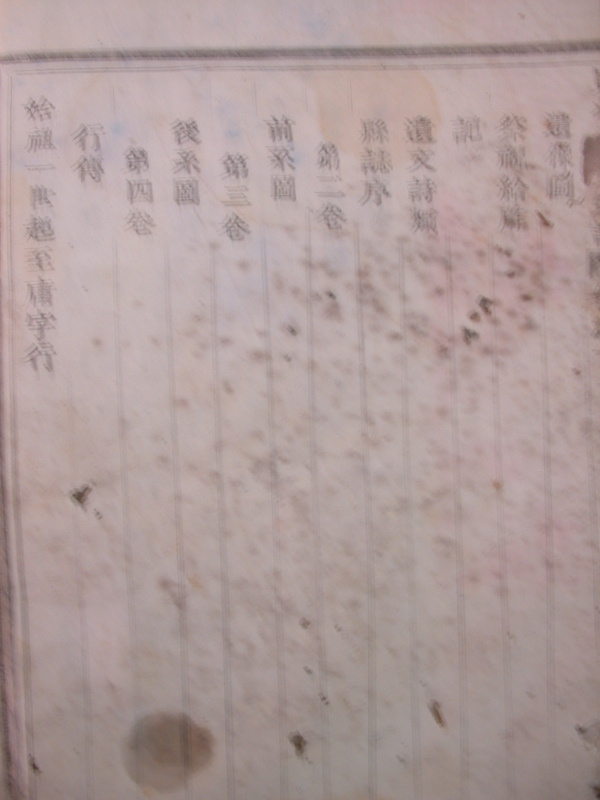 遺像圖
祭祝給蔴
記
遺文詩類
縣誌序
第二卷
前系圖
第三卷
後系圖
第四卷
行傳
始祖一世起至庸字行